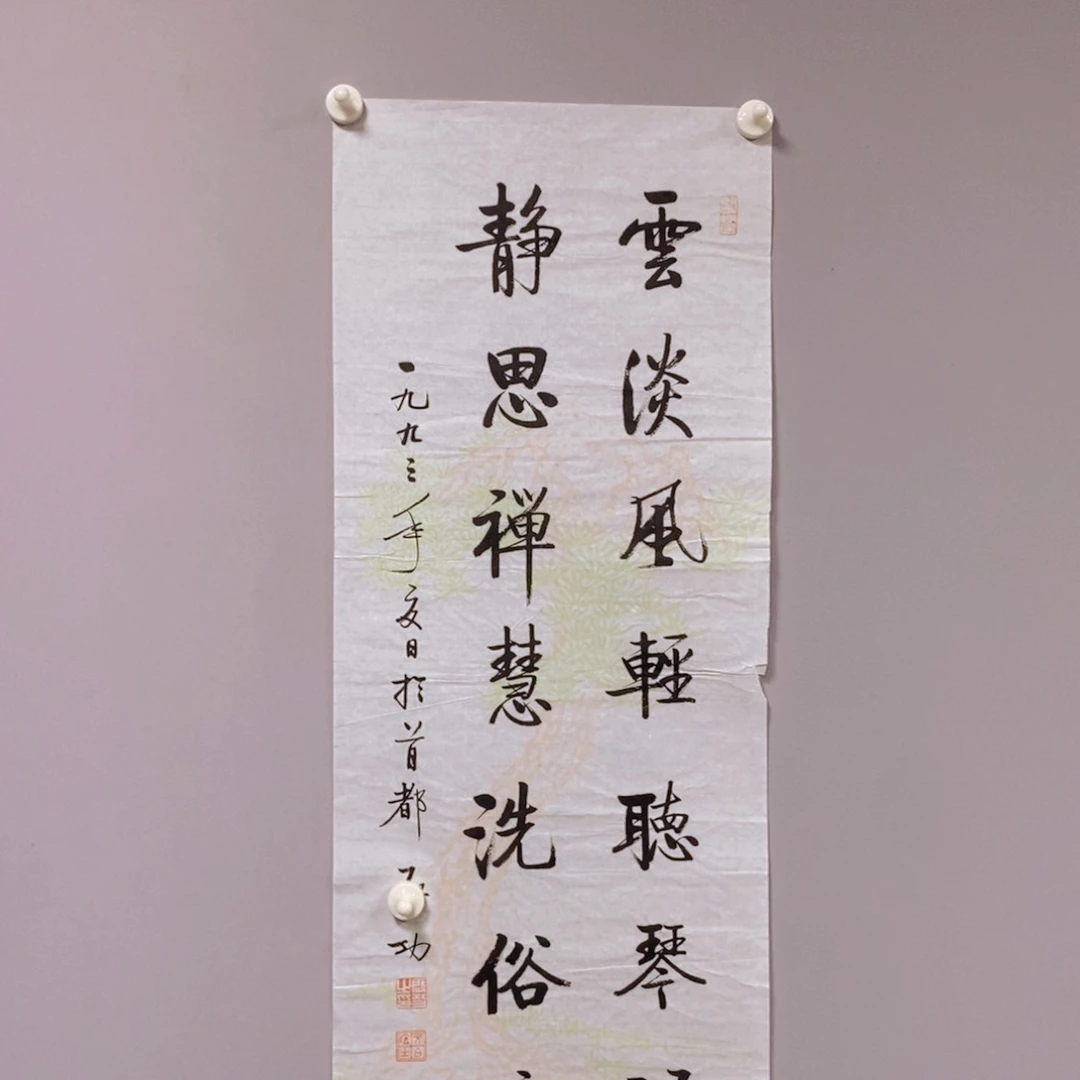 雲淡風輕聽琴
静思禅慧洗俗
一九九三年夏日於首都
功